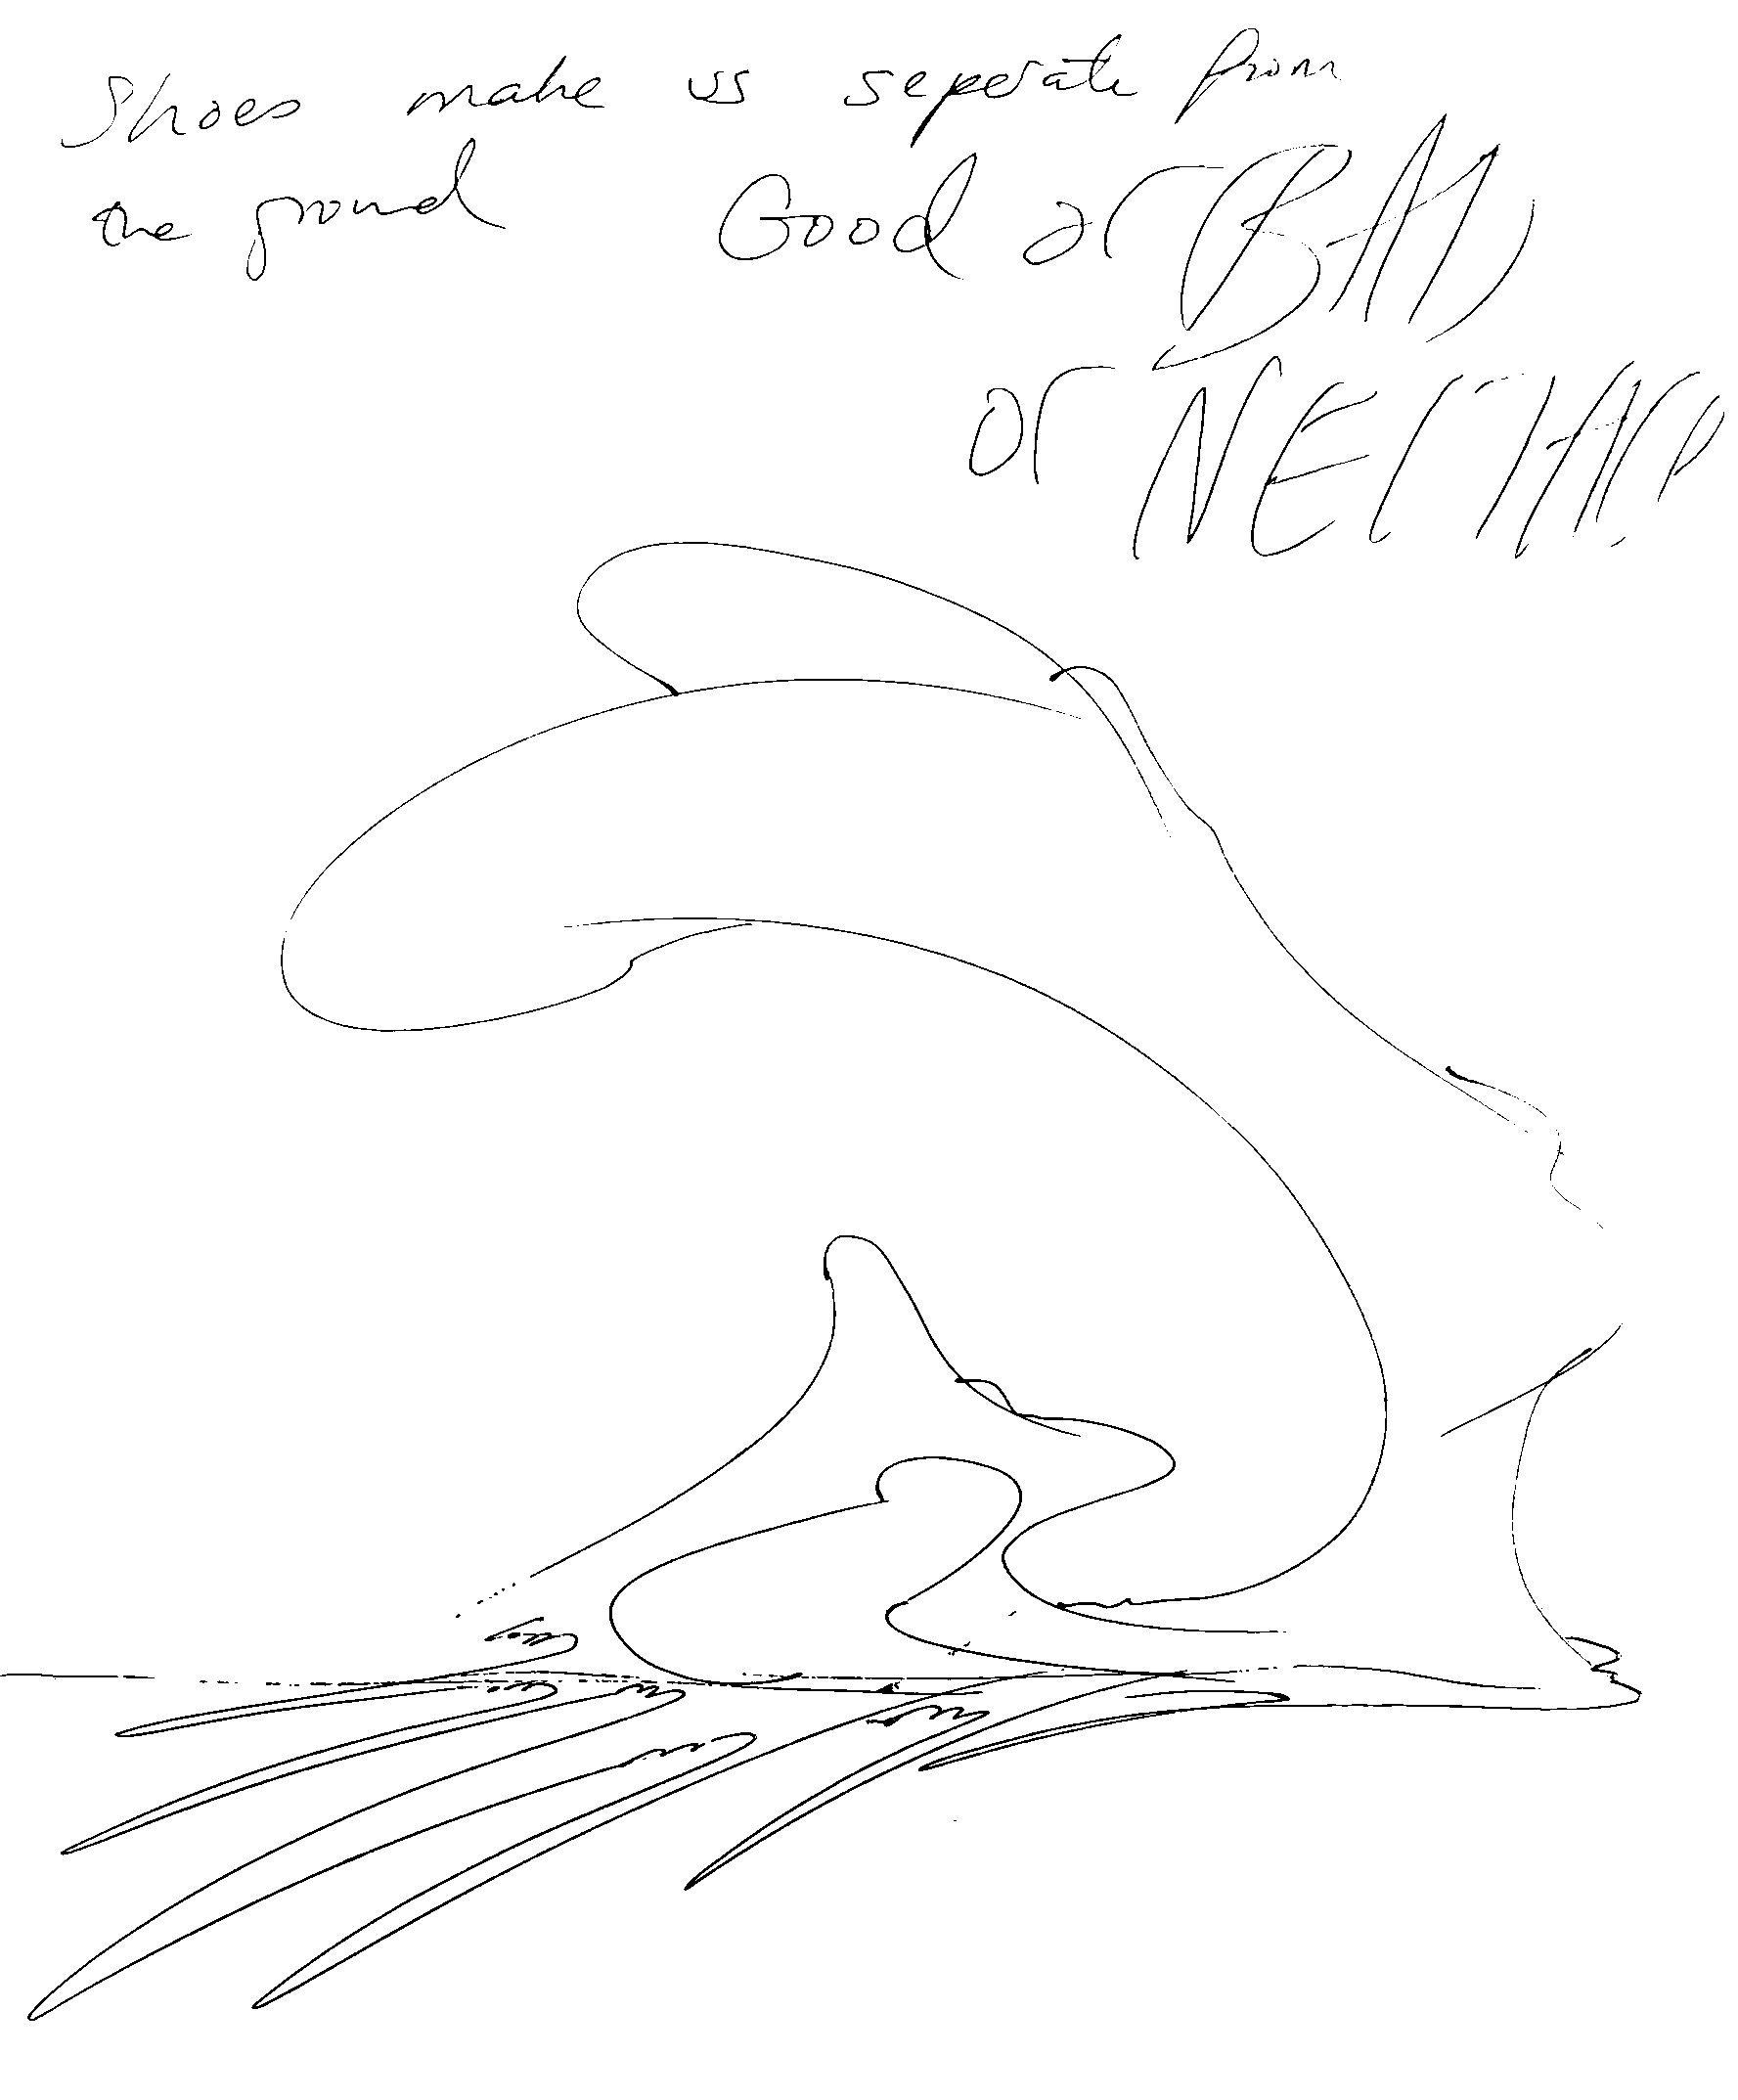 Shoes make us seperate from
the ground Good or BAD
or NEITHER